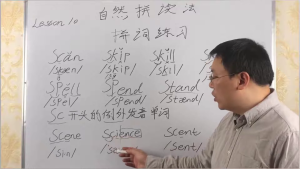 Lesson 10 自然拼读法
拼词练习
Scan Skip Skill
/skæn/ /skip/ /skil/
Spell Spend Stand
/spel/ /spend/ /stænd/
Sc开头的例外发音单词
Scene Science Scent
/sin/ /sent/